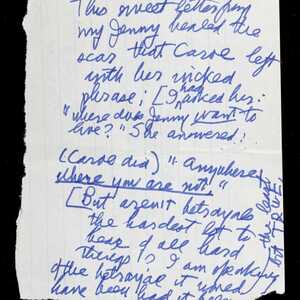 This sweet letter from
my Jenny healed the
scar that Carol left
with her wicked
phrase; [I had asked her:
"where does Jenny want to
live?" She answered:
(Carol did) "Anywhere
where you are not!"
[But aren't betrayals
the hardest left to
bear of all hard
things? I am speaking
of the betrayal, it
have been
but TRUE!